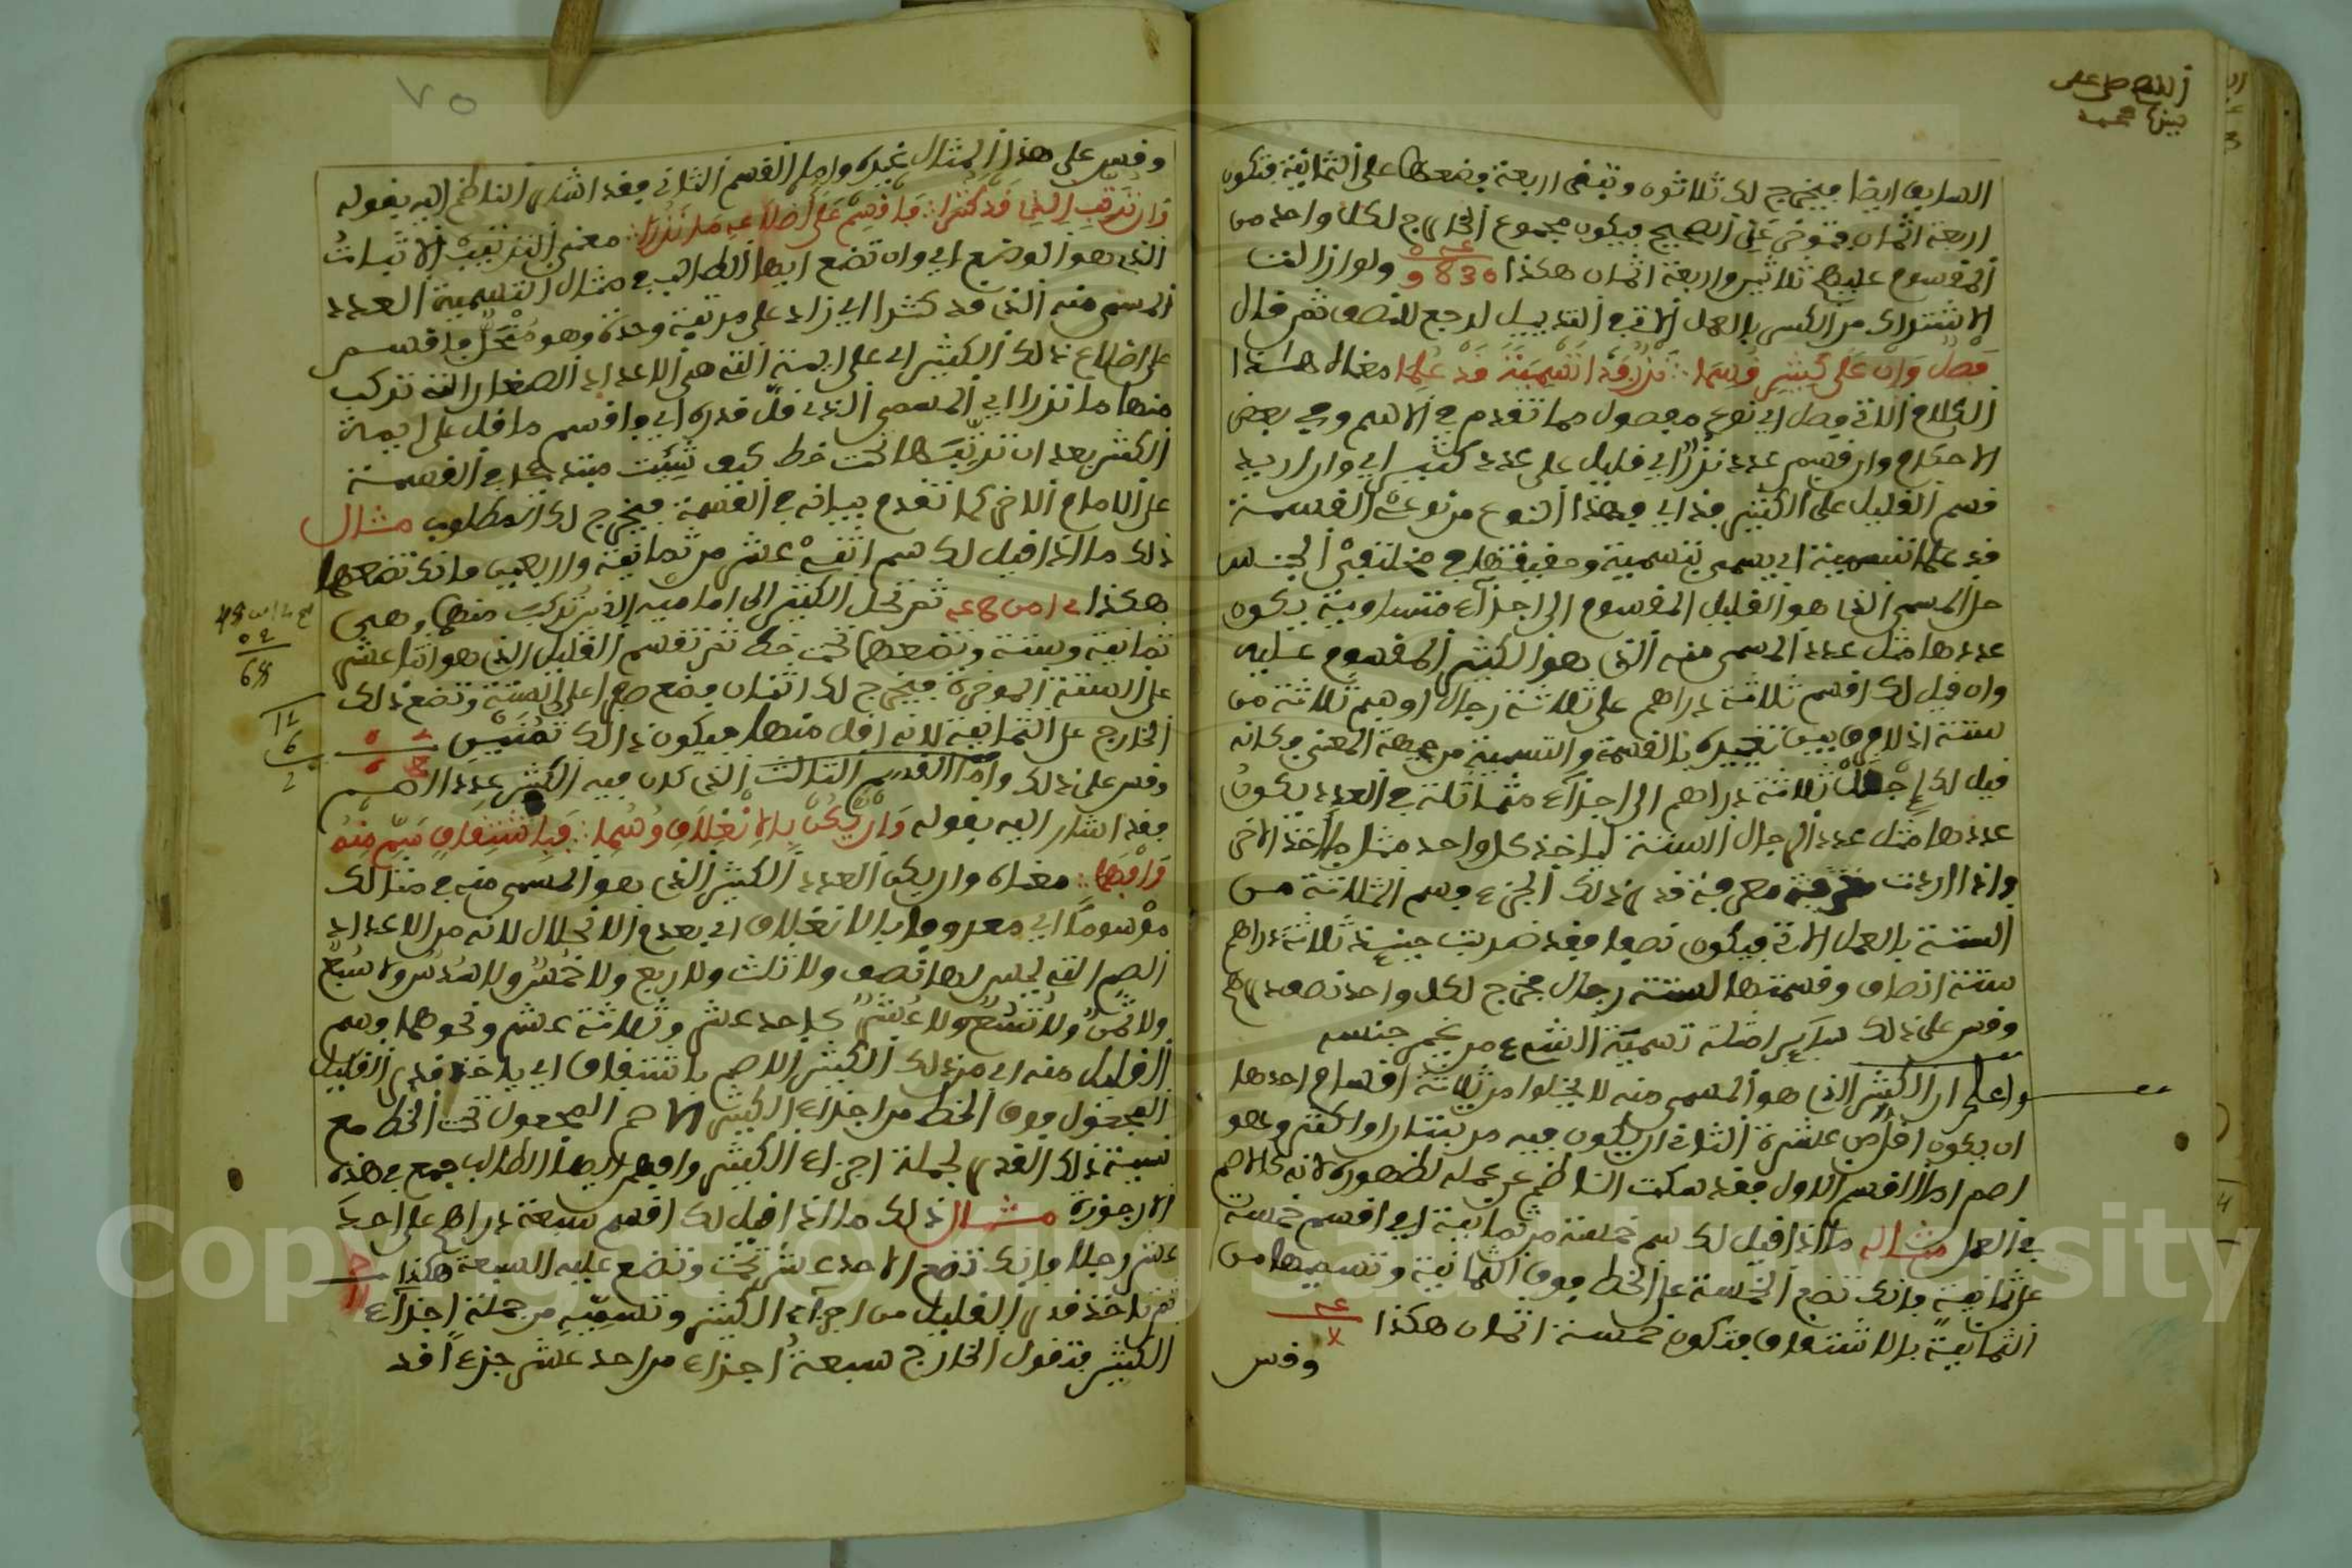 اللهم صل على
سيدنا محمد
السابق ايضا فيخرج لك ثلاثون وتبقى اربعة فضعها على الثمانية فتكون
اربعة اثمان فتوخذ عن الصحيح فيكون مجموع الخارج لكل واحد من
المقسوم عليهم ثلاثين واربعة اثمان هكذا ولو ازالت
الاشتراك من الكسر بالعمل الاتي في التذييل لرجع لنصف ثم قال
فصل وان على كثير قسما نزر فذا تسمية قد علما معناه هاذا
الكلام الاتي فصل اي نوع مفصول مما تقدم في الاسم وفي بعض
الاحكام وان قسم عدد نزر اي قليل على عدد كثير اي وان اريد
قسم القليل على الكثير فذا اي فهذا النوع من نوعي القسمة
قد علما تسمية اي يسمى بتسمية وحقيقتها في مختلفي الجنس
حل المسمى الذي هو القليل المقسوم الى اجزاء متساوية يكون
عددها مثل عدد المسمى منه الذي هو الكثير المقسوم عليه
وان قيل لك اقسم ثلاثة دراهم على ثلاثة رجال او سم ثلاثة من
ستة اذ لا فرق بين تعبيره بالقسمة والتسمية من جهة المعنى فكانه
قيل لك اجعل ثلاثة دراهم الى اجزاء متماثلة في العدد يكون
عددها مثل عدد الرجال الستة لياخذ كل واحد مثل ما اخذ الاخر
واذا اردت معرفة قدر ذلك الجزء فسم الثلاثة من
الستة بالعمل الاتي فيكون نصفا فقد ضربت حينئذ ثلاثة دراهم
ستة انصاف وقسمتها لستة رجال فخرج لكل واحد نصف درهم
وقس على ذلك سائر امثلة تسمية الشيء من غير جنسه
واعلم ان الكثير الذي هو المسمى منه لا يخلوا من ثلاثة اقسام احدها
ان يكون اقل من عشرة الثاني ان يكون فيه مرتبتان او اكثر وهو
اصم اما القسم الاول فقد سكت الناظم عن عمله لظهوره لانه كالاصم
في العمل مثاله ما اذا قيل لك سم خمسة من ثمانية اي اقسم خمسة
على ثمانية فانك تضع الخمسة على الخط فوق الثمانية وتسميها من
الثمانية بالاشتقاق فتكون خمسة اثمان هكذا
وقس
٧٥
وقس على هذا المثال غيره واما القسم الثاني فقد اشار الناظم اليه بقوله
وان ترتب الذي قد كثرا فاقسم على اضلاعه ما نزرا معنى الترتيب الاثبات
الذي هو الوضع اي وان تضع ايها الطالب في مثال التسمية العدد
المسمى منه الذي قد كثرا اي زاد على مرتبة وحدة وهو منحل فاقسم
على اضلاع ذلك الكثير اي على ايمته التي هي الاعداد الصغار التي تركب
منها ما نزرا اي المسمى الذي قل قدره اي فاقسم ما قل على ايمة
الكثير بعد ان ترتبها تحت خط كيف شئت مبتدءا في القسمة
على الامام الاخر كما تقدم بيانه في القسمة فيخرج لك المطلوب مثال
ذلك ما اذا قيل لك سم اثني عشر من ثمانية واربعين فانك تضعها
هكذا ثم تحل الكثير الى اماميه الذي تركب منها وهي
ثمانية وستة وتضعها تحت خط ثم تقسم القليل الذي هو اثنا عشر
على الستة الموخرة فيخرج لك اثنان فضع صفرا على الستة وتضع ذلك
الخارج على الثمانية لانه اقل منها فيكون ذلك ثمنين
وقس على ذلك واما القسم الثالث الذي كان فيه الكثير عددا اصم
فقد اشار اليه بقوله وان يكن بالانغلاق وسما فباشتقاق سم منه
وافهما معناه وان يكن العدد الكثير الذي هو المسمى منه في مثالك
موسوما اي معروفا بالانغلاق اي بعدم الانحلال لانه من الاعداد
الصم التي ليس لها نصف ولا ثلث ولا ربع ولا خمس ولا سدس ولا سبع
ولا ثمن ولا تسع ولا عشر كاحد عشر وثلاثة عشر ونحوهما فسم
القليل منه اي من ذلك الكثير الاصم باشتقاق اي باخذ قدر القليل
المجعول فوق الخط من اجزاء الكثير الاصم المجعول تحت الخط مع
نسبة ذلك القدر لجملة اجزاء الكثير وافهم ايها الطالب جميع هذه
الارجوزة مثال ذلك ما اذا قيل لك اقسم سبعة دراهم على احد
عشر رجلا فانك تضع الاحد عشر تحت وتضع عليه السبعة هكذا
ثم تاخذ قدر القليل من اجزاء الكثير وتسميه من جملة اجزاء
الكثير فتقول الخارج سبعة اجزاء من احد عشر جزءا قد
Copyright © King Saud University